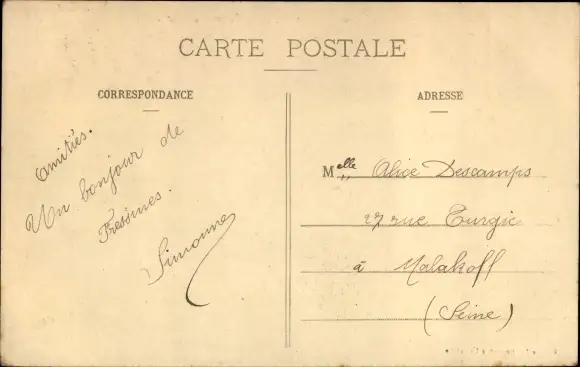 CARTE POSTALE
CORRESPONDANCE
Amitiés.
Un bonjour de
Fressines.
Simonne
ADRESSE
Melle Alice Descamps
27 rue Turgie
à Malakoff
(Seine)